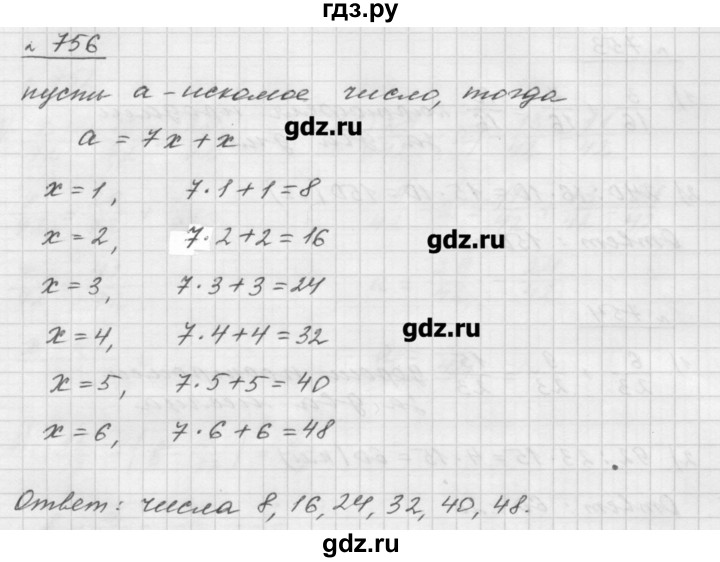 гдз.ру
№ 756
пусть a - искомое число, тогда
gdz.ru
a = 7x + x
x = 1, 7·1+1=8
x = 2, 7·2+2=16
gdz.ru
x = 3, 7·3+3=24
gdz.ru
x = 4, 7·4+4=32
x = 5, 7·5+5=40
x = 6, 7·6+6=48
Ответ: числа 8, 16, 24, 32, 40, 48.
gdz.ru